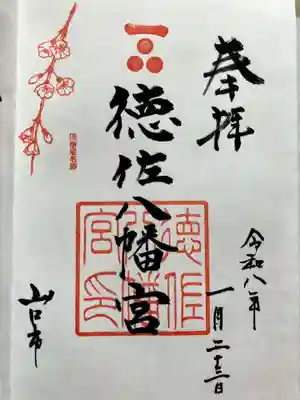 奉拝
令和八年
一月二十三日
徳佐八幡宮
徳佐八幡宮印
山口市